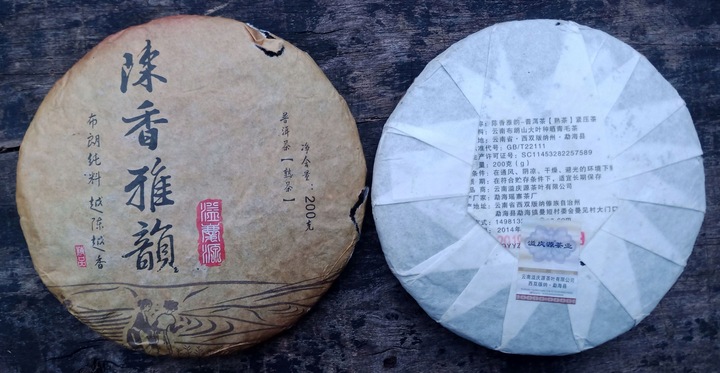 陈香雅韻
布朗純料 越陈越香
普洱茶【熟茶】
净含量：200克
溢慶源
陈香雅韵-普洱茶【熟茶】紧压茶
云南布朗山大叶种晒青毛茶
云南省·西双版纳州·勐海县
准代号：GB/T22111
产许可证号：SC11453282257589
量：200克（g）
条件：在通风、阴凉、干燥、避光的环境下
期：在符合贮存条件下，适宜长期保存
商：云南溢庆源茶叶有限公司
厂家：勐海瑶寨茶厂
地址：云南省西双版纳傣族自治州
勐海县勐海镇曼短村委会曼见村大门口
方式：149813
2014年
溢庆源茶业
云南溢庆源茶叶有限公司
西双版纳·勐海县